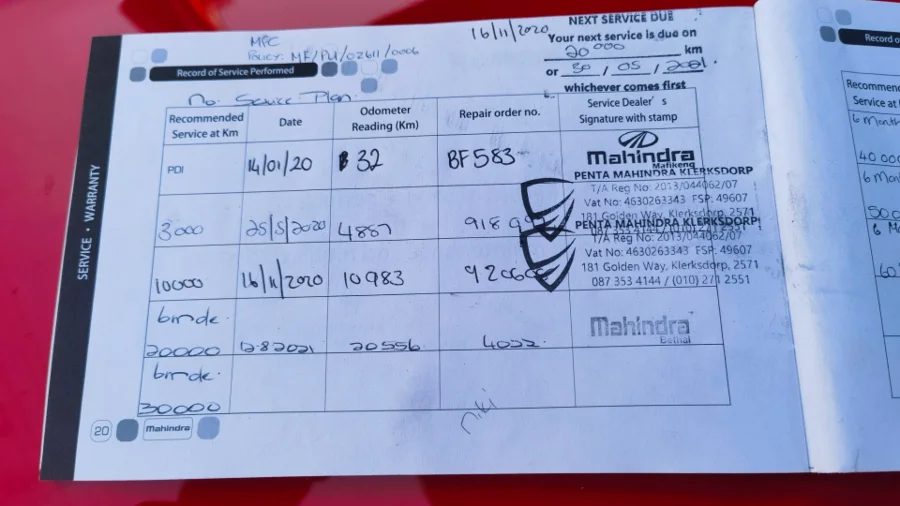 MFC
Policy: MF/PU/02611/0006
16/11/2020
NEXT SERVICE DUE
Your next service is due on
20 000 km
or 30 / 05 / 2021.
whichever comes first
Record of Service Performed
No Service Plan.
Recommended Service at Km
Date
Odometer Reading (Km)
Repair order no.
Service Dealer's Signature with stamp
PDI 14/01/20 32 BF583
Mahindra
Mafikeng
3000 25/5/2020 4887
PENTA MAHINDRA KLERKSDORP
T/A Reg No: 2013/044062/07
Vat No: 4630263343 FSP: 49607
181 Golden Way, Klerksdorp, 2571
10000 16/11/2020 10983
PENTA MAHINDRA KLERKSDORP
T/A Reg No: 2013/044062/07
Vat No: 4630263343 FSP: 49607
181 Golden Way, Klerksdorp, 2571
087 353 4144 / (010) 271 2551
6mde.
20000 12.8.2021 20556 4022.
Mahindra
Bethal
6mde.
30000
niki
20
Mahindra
SERVICE • WARRANTY
Record o
Recommen
Service at
6 Month
40 000
6 Mon
6 Mo